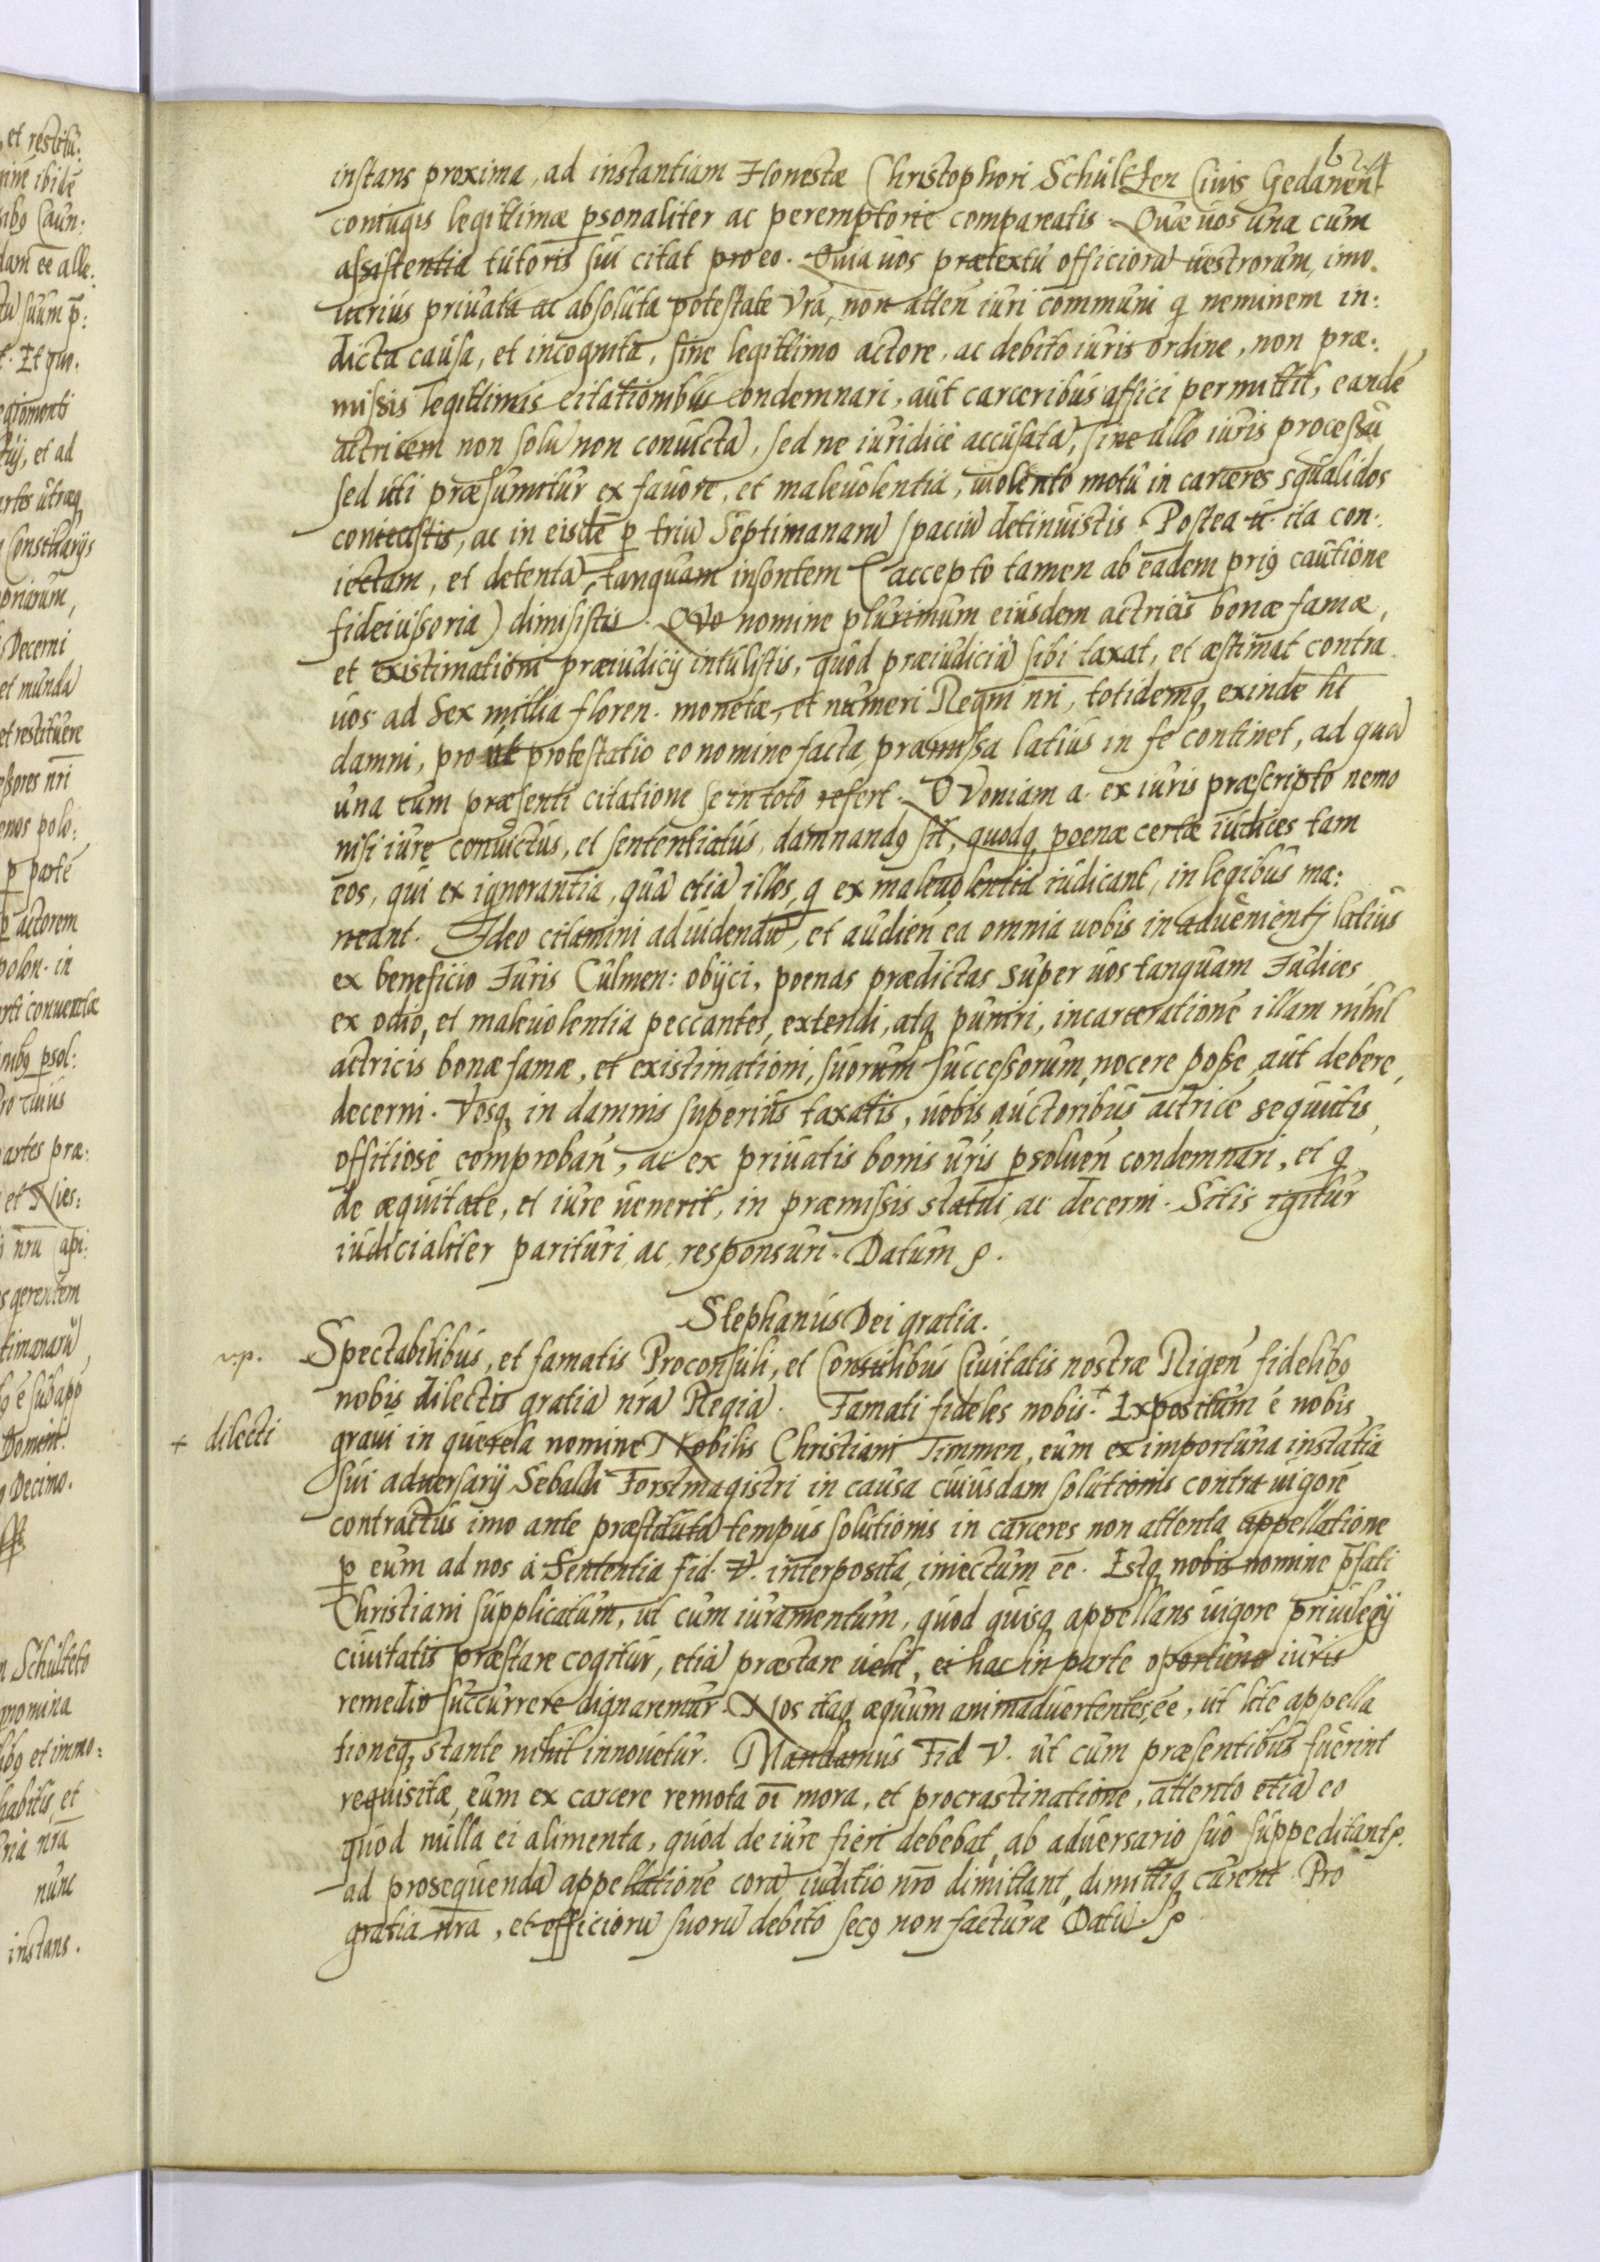 624
instans proxima, ad instantiam Honestæ Christophori Schúltzen Civis Gedanen͂
coniugis legittimæ psonaliter ac peremptorie compareatis. Quæ uos úna cúm
assistentia tútoris súi citat pro eo. Quia úos prætextú officiorú uestrorúm, imo
uerius priúata ac absolúta potestate Vra, non atten iúri commúni q neminem in:
dicta caúsa, et incognita, sine legittimo actore, ac debito iúris ordine, non præ:
missis legittimis citationibús condemnari, aút carceribús affici permittit, eandē
actricem non solú non conúicta, sed ne iúridicè accúsata, sine úllo iúris processú
sed úti præsúmitúr ex faúore, et maleúolentia, uiolento motú in carceres sqúalidos
coniecistis, ac in eisdē p triú Septimanarú spaciú detinúistis. Postea ú. ita con:
iectam, et detentā, tanqúam insontem (accepto tamen ab eadem priꝯ caútione
fideiússoria) dimisistis. Qvo nomine plúrimúm eiúsdem actricis bonæ famæ,
et existimationi præiúdicij intúlistis, qúod præiúdiciú sibi taxat, et æstimat contra
úos ad Sex millia floren. monetæ, et númeri Regni nri, totidemq exinde ht
damni, pro út protestatio eo nomine facta, præmissa latiús in se continet, ad quā
úna cúm præsenti citatione se in toto refert. QVoniam a. ex iúris præscripto nemo
nisi iúre conúictús, et sententiatús, damnandꝯ sit, qúodq poenæ certæ iúdices tam
eos, qúi ex ignorantia, qúā etiā illos, q ex maleúolentia iúdicant, in legibús ma:
neant. Ideo citamini ad úidendú, et aúdien ea omnia uobis in adúenienti latiús
ex beneficio Júris Cúlmen: obijci, poenas prædictas súper úos tanqúam Júdices
ex odio, et maleúolentia peccantes, extendi, atq púniri, incarcerationē illam nihil
actricis bonæ famæ, et existimationi, súorúm súccessorúm, nocere posse, aút debere,
decerni. Vosq in damnis súperiús taxatis, úobis aúctoribús actricē seqúútis,
offitiosè comproban, ac ex priúatis bonis úris psolúen condemnari, et q
de æqúitate, et iúre úenerit, in præmissis statúi, ac decerni. Sitis igitúr
iúdicialiter paritúri, ac responsúri. Datúm ꝭ.
Stephanús Dei gratia.
v.p.
Spectabilibús, et famatis Proconsúli, et Consúlibús Ciúitatis nostræ Rigen fidelibꝯ
nobis dilectis gratiā nrā Regiā. Famati fideles nobis. + Expositúm ē nobis
+ dilecti
graúi in qúerela nomine Nobilis Christiani Timmen, eúm ex importúna instātia
súi adúersarij Sebaldi Forstmagistri in caúsa cúiúsdam solútionis contra úigorē
contractús imo ante præstitútā tempús solútionis in carceres non attenta appellatione
p eúm ad nos à Sententia Fid. V. interposita, iniectúm eē. Estq nobis nomine pfati
Christiani súpplicatúm, út cúm iúramentúm, qúod qúisq appellans úigore priúilegij
ciúitatis præstare cogitúr, etiā præstare úelit, ei hac in parte oportúno iúris
remedio súccúrrere dignaremúr. Nos itaq æqúúm animadúertentes eē, út lite appella
tioneq stante nihil innoúetúr. Mandamús Fid V. út cúm præsentibús fúerint
reqúisitæ, eúm ex carcere remota oi mora, et procrastinatione, attento etiā eo
qúod núlla ei alimenta, qúod de iúre fieri debebat, ab adúersario súo súppeditantꝭ.
ad proseqúendā appellationē corā iúditio nro dimittant, dimittiq cúrent Pro
gratia nra, et officiorú súorú debito secꝯ non factúræ Datú. ꝭ